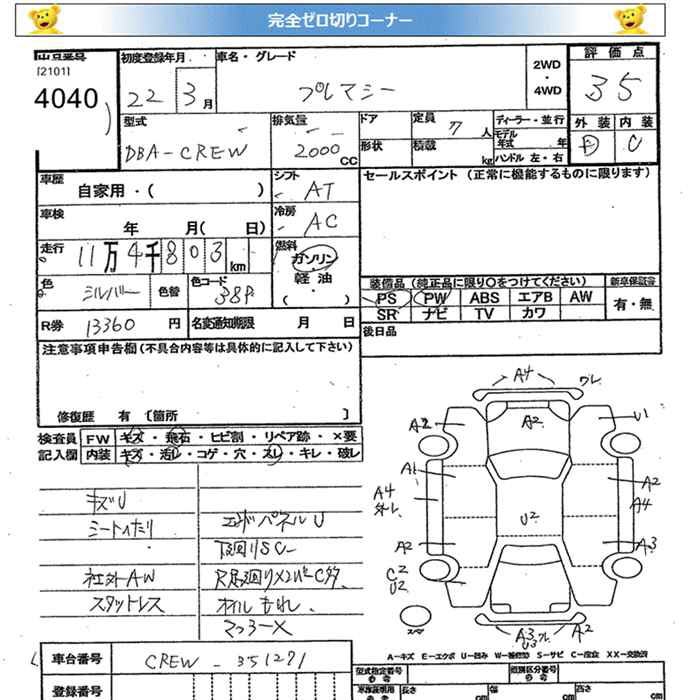 完全ゼロ切りコーナー
出品番号 [2101] 4040
初度登録年月 22 3月
車名・グレード プレマシー
2WD・4WD
評価点 35
型式 DBA-CREW
排気量 2000 CC
ドア 形状
定員 7人
積載 kg
ディーラー・並行
モデル年式 年
ハンドル 左・右
外装 D 内装 C
車歴 自家用・( )
シフト AT
セールスポイント (正常に機能するものに限ります)
車検 年 月( 日)
冷房 AC
走行 11万4千803km
燃料 ガソリン 軽油 ( ・ )
色 シルバー 色替 色コード 38P
装備品 (純正品に限り○をつけてください) 新車保証書
PS PW ABS エアB AW 有・無
SR ナビ TV カワ
R券 13360円 名変通知期限 月 日
後日品
注意事項申告欄 (不具合内容等は具体的に記入して下さい)
修復歴 有 〔箇所 〕
検査員 FW キズ・飛石・ヒビ割・リペア跡・×要
記入欄 内装 キズ・汚レ・コゲ・穴・スレ・キレ・破レ
キズU
シートへたり
社外AW
スタットレス
エンドパネルU
下廻りSC
オイルもれ
マフラーX
A4 ワレ
A2 A2 U1
A1 A2
A4 A4
U2
A2 A3
C2
U2
スペア
A3 A2
A-キズ E-エクボ U-凹み W-補修跡 S-サビ C-腐食 XX-交換済
車台番号 CREW-351271
登録番号
型式指定番号 類別区分番号
長さ cm 幅 cm 高さ cm